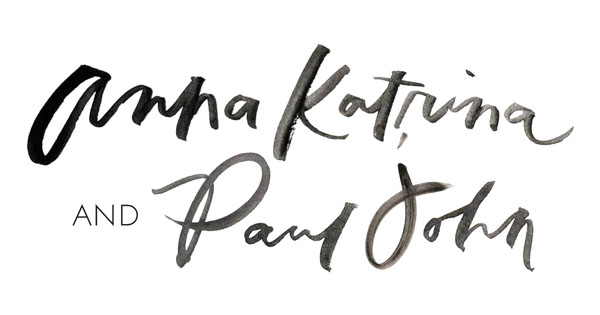 Anna Katrina
AND Paul John